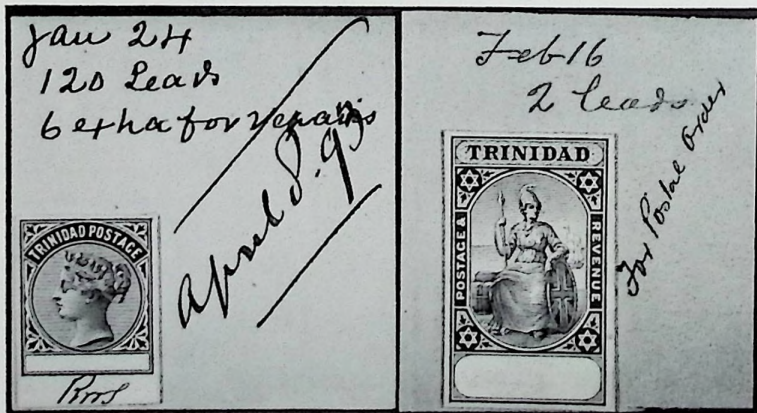 Jan 24
120 Leads
6 extra for repairs
April 8. 93
TRINIDAD POSTAGE
Feb 16
2 leads
For Postal Order
TRINIDAD
POSTAGE &
REVENUE